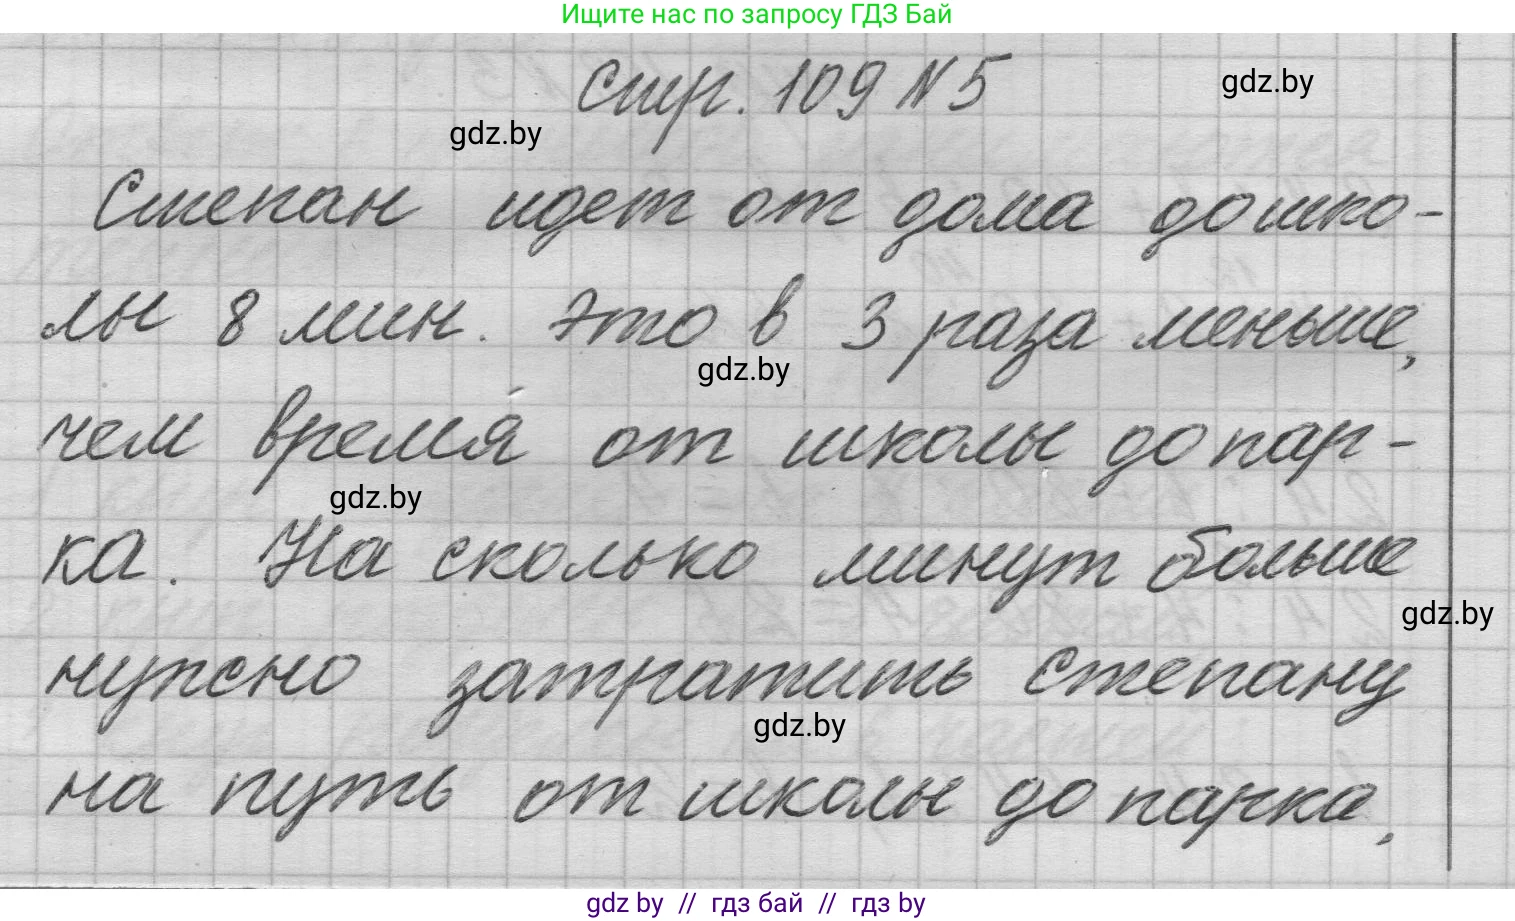 Ищите нас по запросу ГДЗ Бай
стр. 109 N 5
gdz.by
gdz.by
Степан идет от дома до шко-
лы 8 мин. Это в 3 раза меньше,
gdz.by
чем время от школы до пар-
gdz.by
ка. На сколько минут больше
gdz.by
нужно затратить Степану
gdz.by
на путь от школы до парка,
gdz.by // гдз бай // гдз by